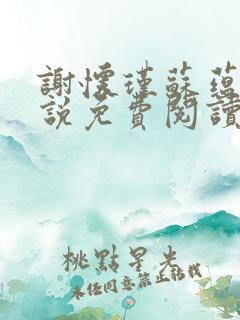 謝懷瑾蘇蘊
說免費閱讀
桃點星光
未经同意禁止转载